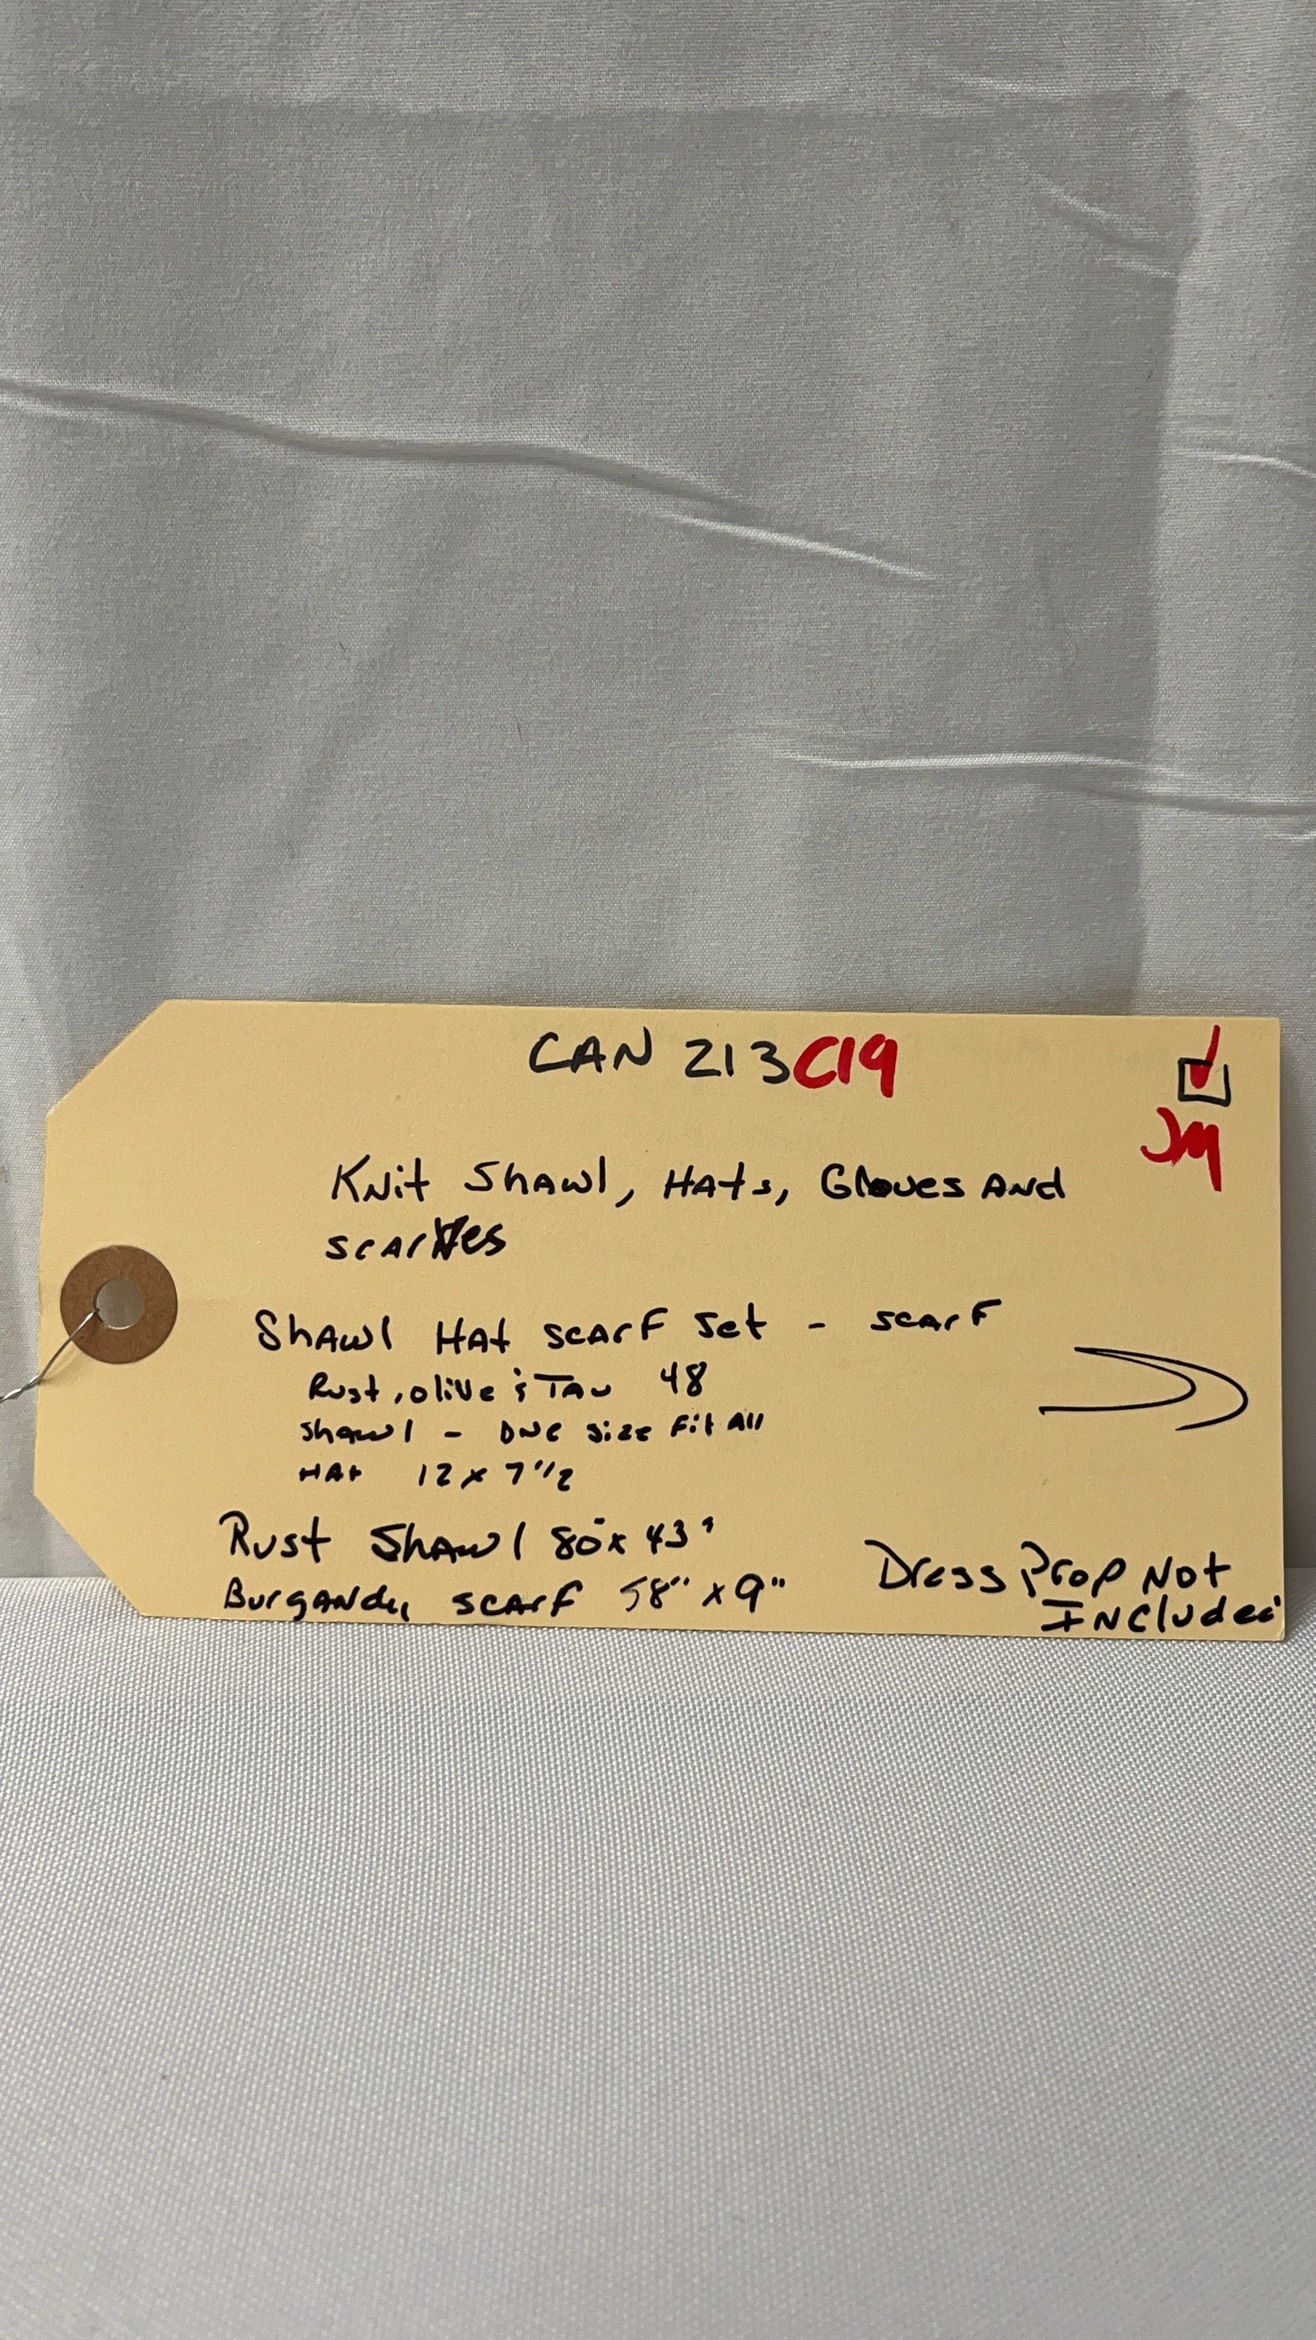 CAN 213C19
JM
Knit Shawl, Hats, Gloves And
scarves
Shawl Hat scarf set - scarf
Rust, olive & Tan 48
Shawl - One size Fit All
Hat 12 x 7 1/2
Rust Shawl 80" x 43"
Burgandy scarf 58" x 9"
Dress Prop Not
Included